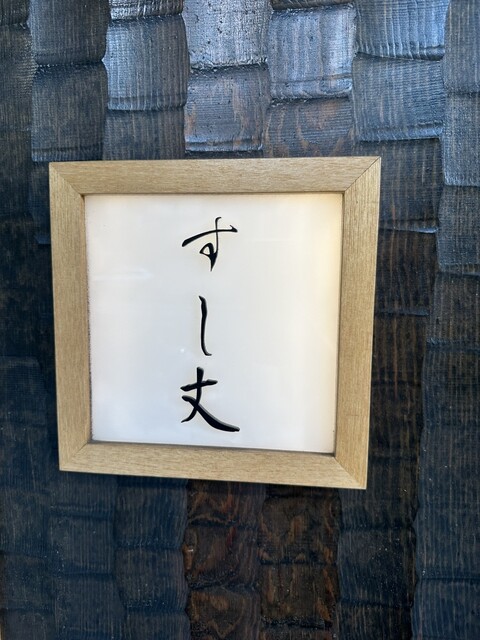 すし丈